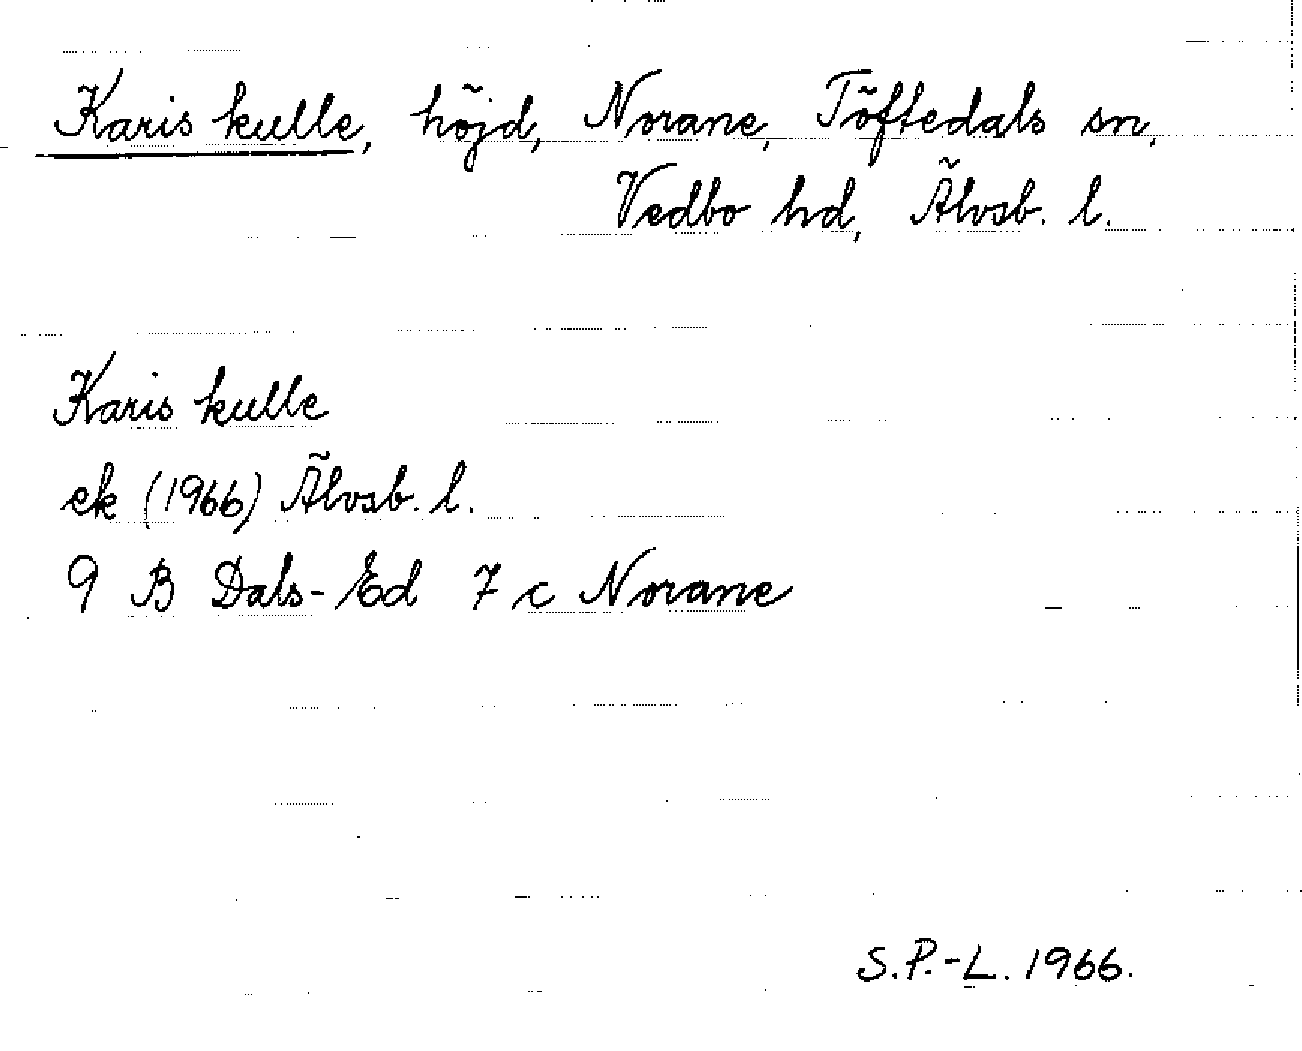 Karis kulle, höjd, Norane, Töftedals sn,
Vedbo hd, Älvsb. l.
Karis kulle
ek (1966) Älvsb. l.
9 B Dals-Ed 7 c Norane
S.P.-L. 1966.